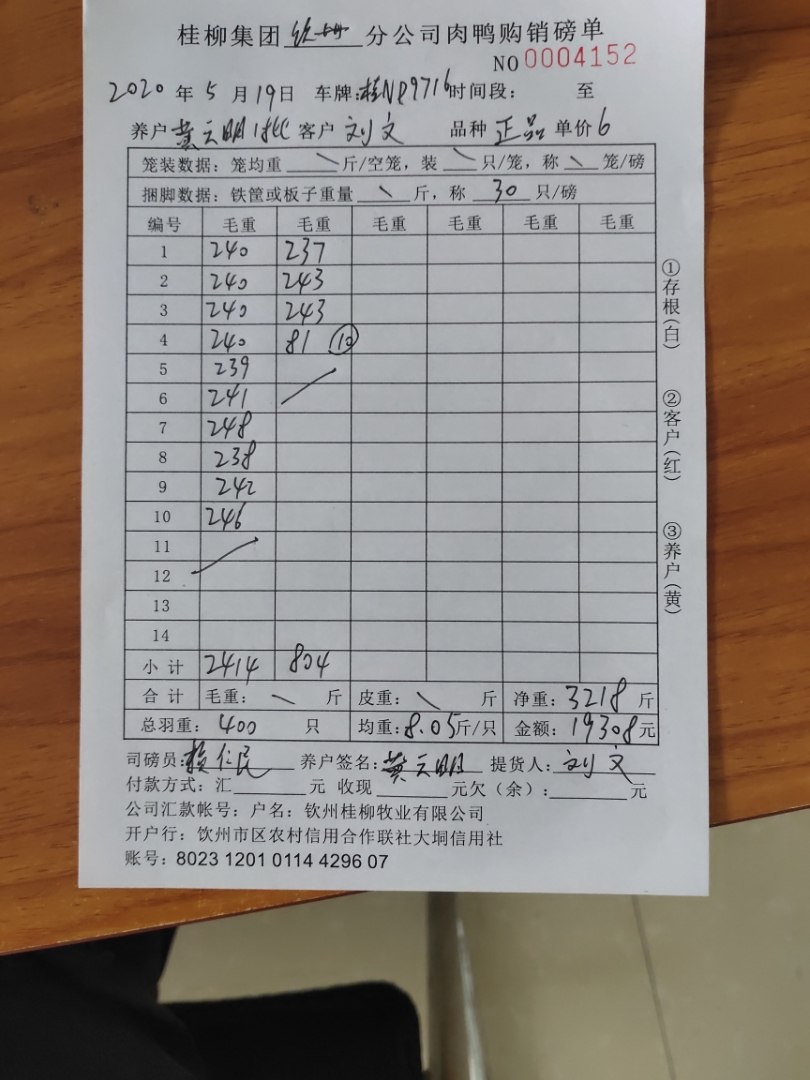 桂柳集团 钦州 分公司肉鸭购销磅单
NO 0004152
2020 年 5 月 19 日 车牌:桂NP9716 时间段: 至
养户 黄云明 客户 刘文 品种 正品 单价 6
笼装数据: 笼均重 \ 斤/空笼, 装 \ 只/笼, 称 \ 笼/磅
捆脚数据: 铁筐或板子重量 \ 斤, 称 30 只/磅
编号 毛重 毛重 毛重 毛重 毛重 毛重
1 240 237
2 240 243
3 240 243
4 240 81 ⑩
5 239
6 241
7 248
8 238
9 242
10 246
11
12
13
14
小计 2414 804
合计 毛重: \ 斤 皮重: \ 斤 净重: 3218 斤
总羽重: 400 只 均重: 8.05 斤/只 金额: 19308 元
司磅员: 仁民 养户签名: 黄云明 提货人: 刘文
付款方式: 汇 元 收现 元欠(余): 元
公司汇款帐号: 户名: 钦州桂柳牧业有限公司
开户行: 钦州市区农村信用合作联社大垌信用社
账号: 8023 1201 0114 4296 07
①存根(白)
②客户(红)
③养户(黄)